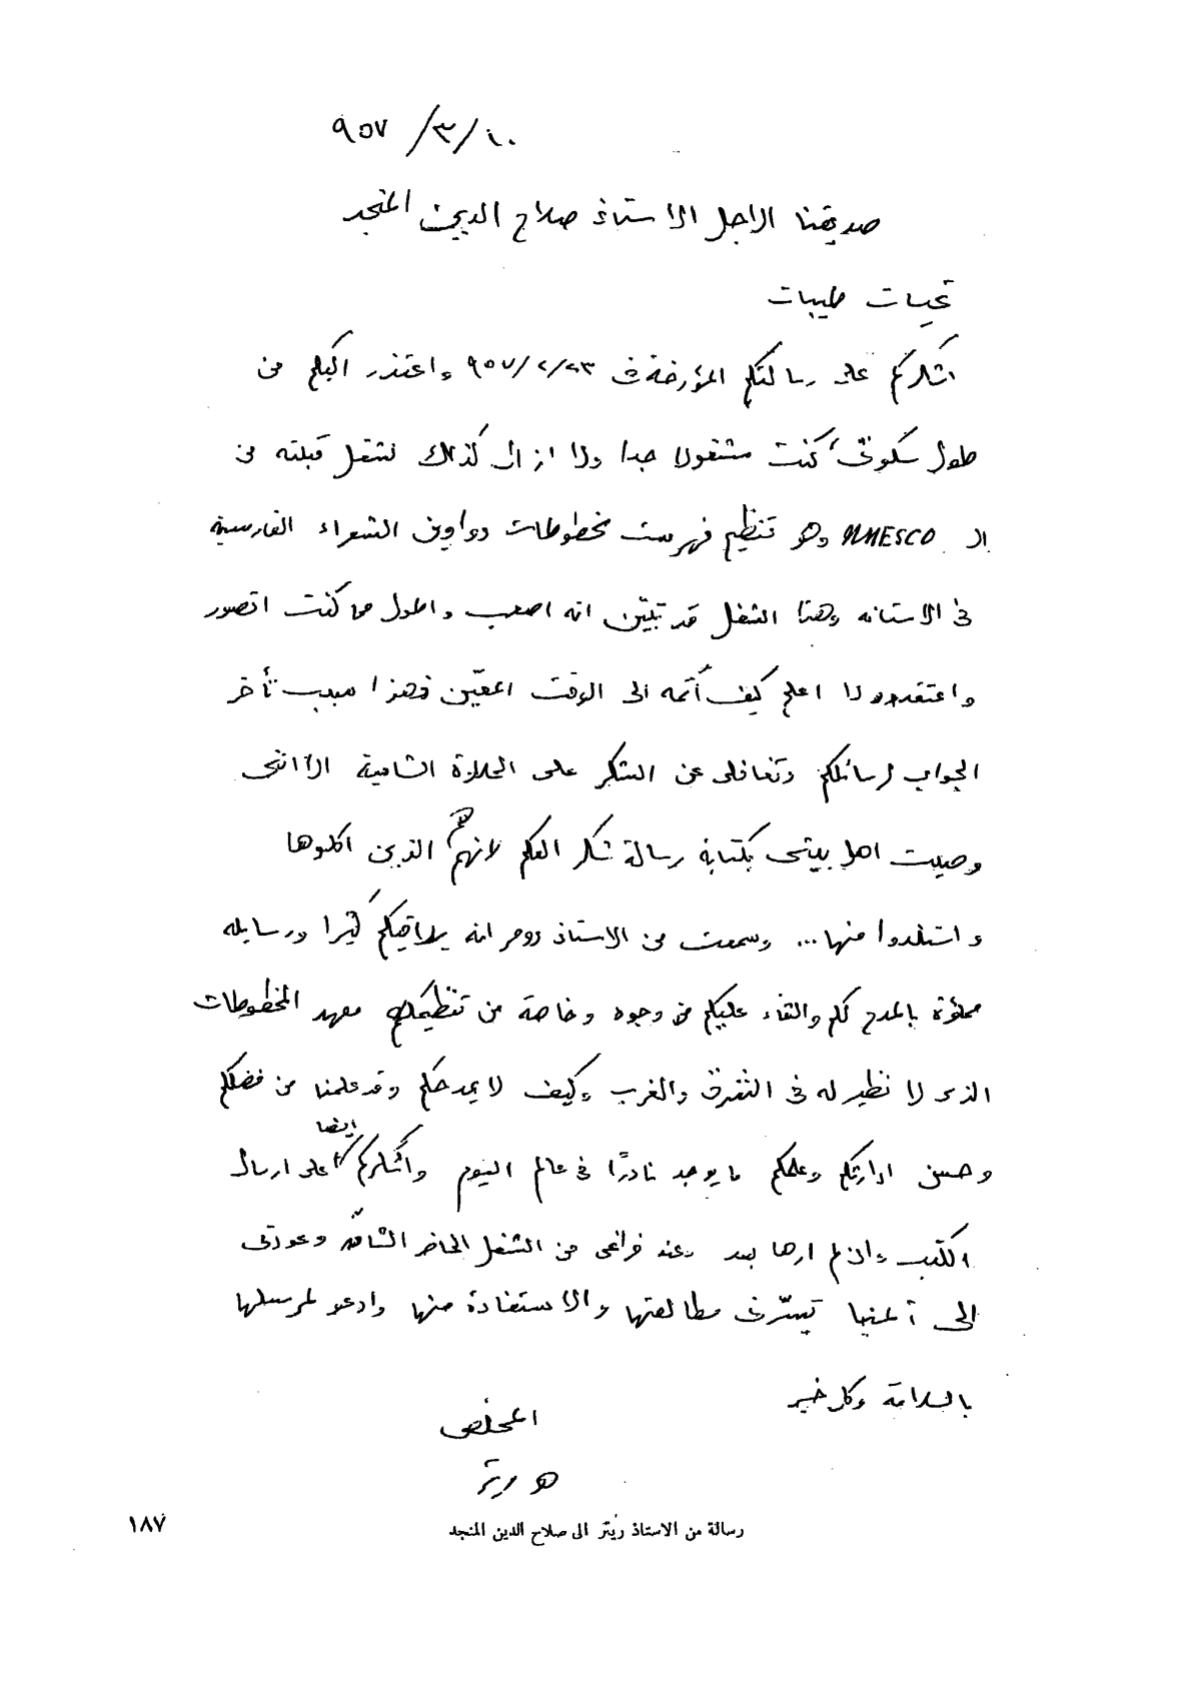 ١٠/٣/ ٩٥٧
صديقنا الاجل الاستاذ صلاح الدين المنجد
تحيات طيبات
اشكركم على رسالتكم المؤرخة في ٢٣/٢/٩٥٧ واعتذر اليكم من
طول سكوتى كنت مشغولا جدا ولا ازال كذلك لشغل قبلته من
ال UNESCO وهو تنظيم فهرست مخطوطات دواوين الشعراء الفارسية
فى الاستانه وهذا الشغل قد تبيّن انه اصعب واطول مما كنت اتصور
واعتقد ولا اعلم كيف أتمه الى الوقت المعيّن فهذا سبب تأخر
الجواب لرسائلكم وتغافلى عن الشكر على الحلاوة الشامية الا اننى
وصيت اهل بيتى بكتابة رسالة شكر اليكم لانهم هم الذين اكلوها
واستلذوا منها... وسمعت من الاستاذ رومر انه يلاقيكم كثيرا ورسايله
مملؤة بالمدح لكم والثناء عليكم من وجوه وخاصة من تنظيمكم معهد المخطوطات
الذى لا نظير له فى الشرق والغرب وكيف لا يمدحكم وقد علمنا من فضلكم
وحسن ادارتكم وعلمكم ما يوجد نادرًا فى عالم اليوم وأشكركم ايضا على ارسال
الكتب واذ لم ارها بعد وعند فراغى من الشغل الحاضر الشاقّ وعودتى
الى المانيا تيسّر لى مطالعتها والاستفادة منها وادعو لمرسلها
بالسلامة وكل خير
المخلص
هـ ريتر
رسالة من الاستاذ ريتر الى صلاح الدين المنجد
١٨٧